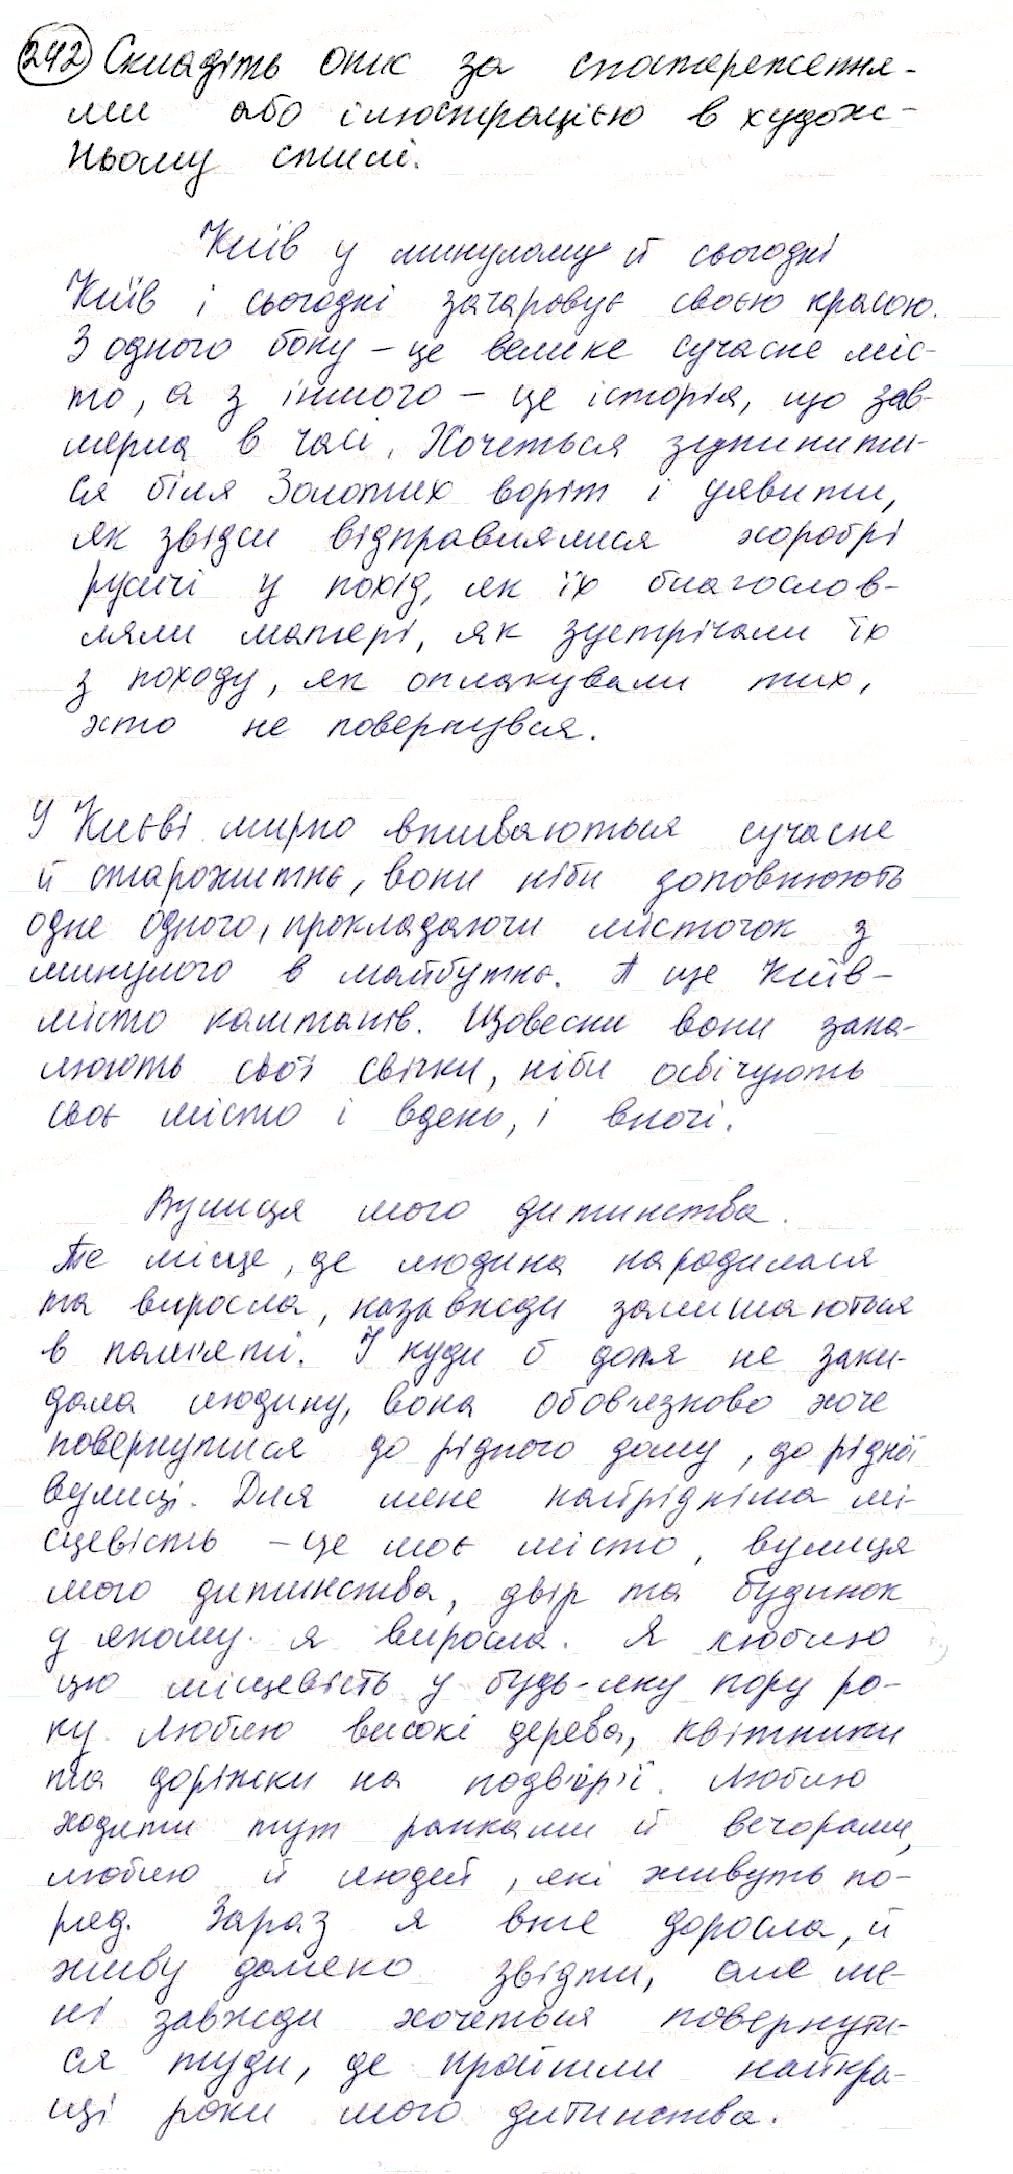 242 Складіть опис за спостереження-
ми або ілюстрацією в худож-
ньому стилі.
Київ у минулому й сьогодні
Київ і сьогодні зачаровує своєю красою.
З одного боку – це велике сучасне міс-
то, а з іншого – це історія, що зав-
мерла в часі. Хочеться зупинити-
ся біля Золотих воріт і уявити,
як звідси відправлялися хоробрі
русичі у похід, як їх благослов-
ляли матері, як зустрічали їх
з походу, як оплакували тих,
хто не повернувся.
У Києві мирно вживаються сучасне
й старожитнє, вони ніби доповнюють
одне одного, прокладаючи місточок з
минулого в майбутнє. А ще Київ –
місто каштанів. Щовесни вони запа-
люють свої свічки, ніби освічують
своє місто і вдень, і вночі.
Вулиця мого дитинства.
Те місце, де людина народилася
та виросла, назавжди залишаються
в пам'яті. І куди б доля не заки-
дала людину, вона обов'язково хоче
повернутися до рідного дому, до рідної
вулиці. Для мене найрідніша мі-
сцевість – це моє місто, вулиця
мого дитинства, двір та будинок
у якому я виросла. Я люблю
цю місцевість у будь-яку пору ро-
ку. Люблю високі дерева, квітники
та доріжки на подвір'ї. Люблю
ходити тут ранками й вечорами,
люблю й людей, які живуть по-
ряд. Зараз я вже доросла, й
живу далеко звідти, але ме-
ні завжди хочеться повернути-
ся туди, де пройшли найкра-
щі роки мого дитинства.